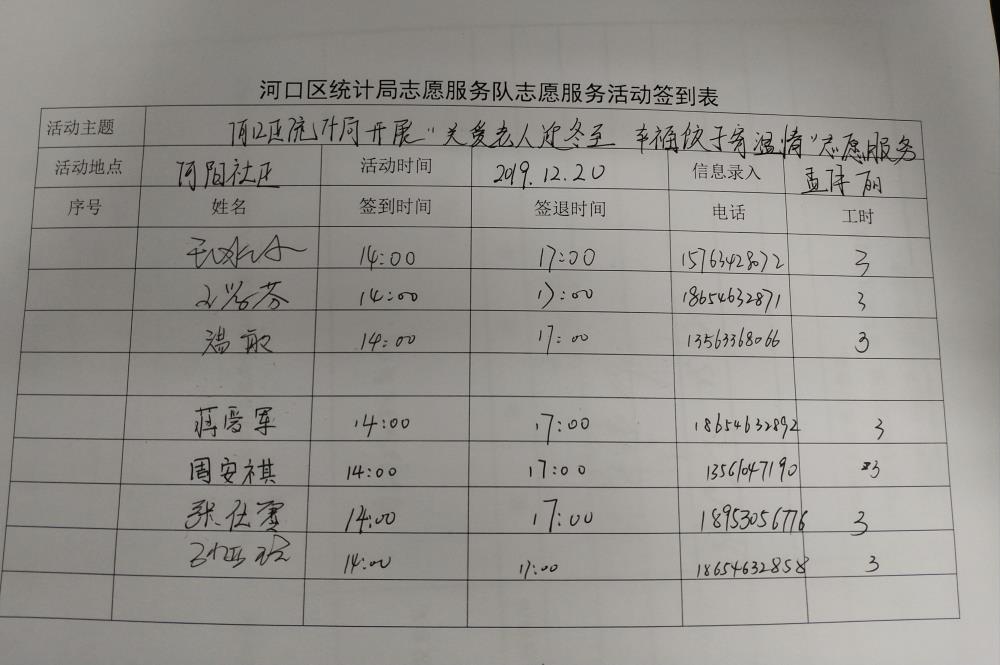 河口区统计局志愿服务队志愿服务活动签到表
活动主题 河口区统计局开展“关爱老人迎冬至 幸福饺子寄温情”志愿服务
活动地点 河阳社区 活动时间 2019.12.20 信息录入 孟 丽
序号 姓名 签到时间 签退时间 电话 工时
14:00 17:00 15763428072 3
14:00 17:00 18654632871 3
温敏 14:00 17:00 13563368066 3
蒋晋军 14:00 17:00 18654632892 3
周安祺 14:00 17:00 13561047190 3
张仕 14:00 17:00 18953056776 3
14:00 17:00 18654632858 3